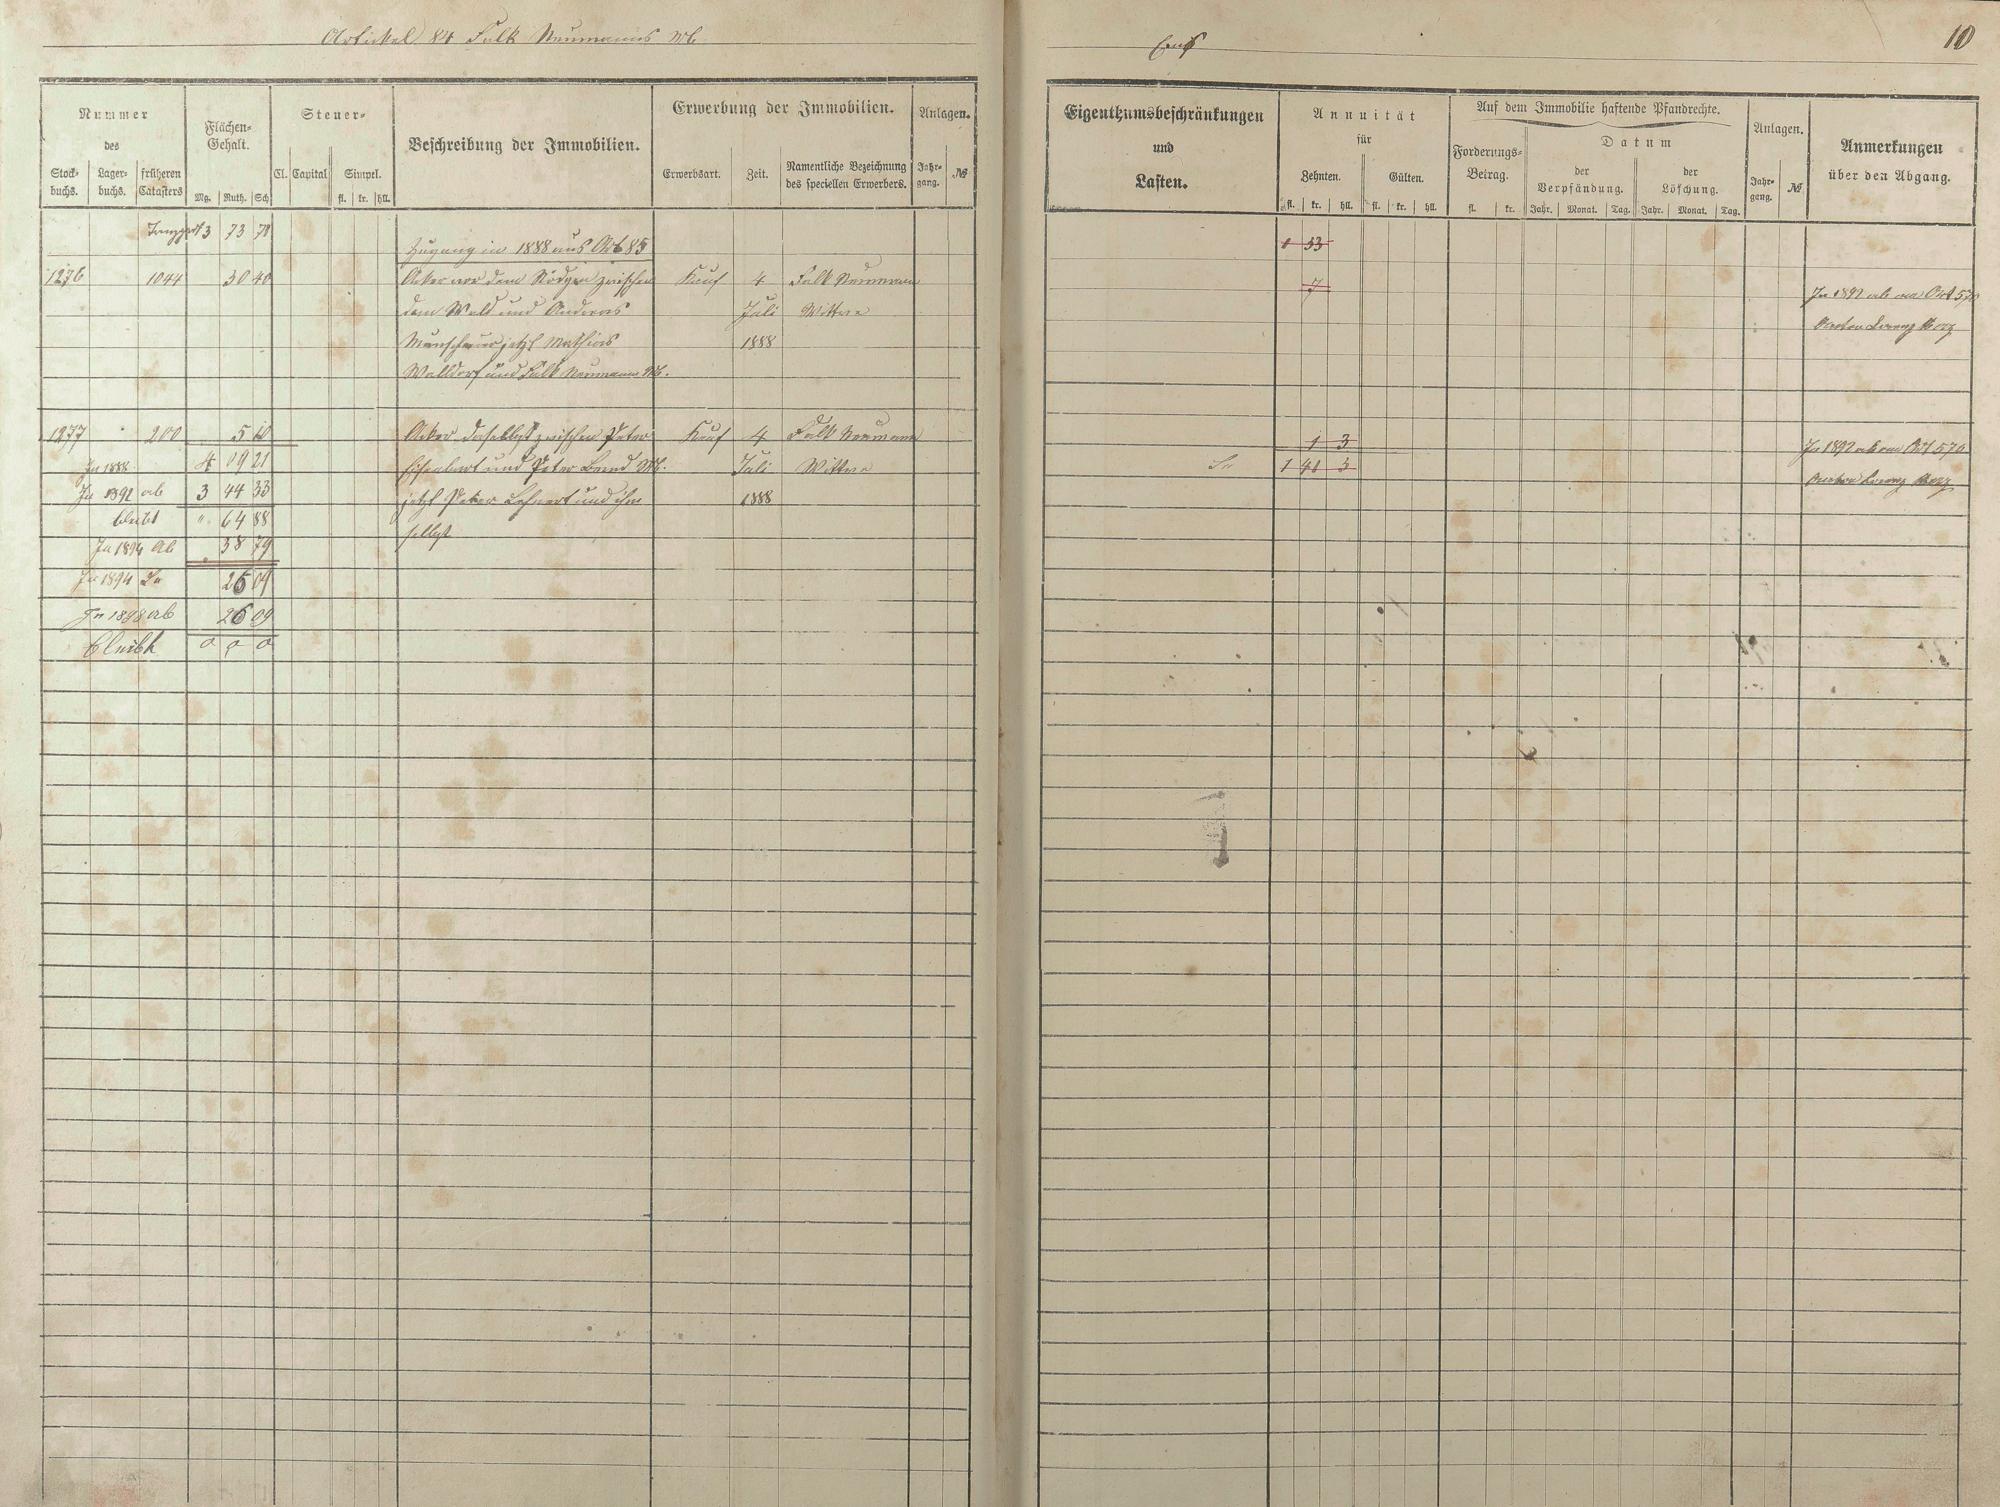 Artickel 84 Falk Neumanns Wb
10
Nummer
des
Stock-
buchs.
Lager-
buchs.
früheren
Catasters
Flächen-
Gehalt.
Mg. Ruth. Sch
Steuer-
Cl. Capital Simpel.
fl. kr. hll.
Beschreibung der Immobilien.
Erwerbung der Immobilien.
Erwerbsart. Zeit.
Namentliche Bezeichnung
des speciellen Erwerbers.
Anlagen.
Jahr-
gang.
№
Eigenthumsbeschränkungen
und
Lasten.
Annuität
für
Zehnten. Gülten.
fl. kr. hll. fl. kr. hll.
Auf dem Immobilie haftende Pfandrechte.
Forderungs-
Betrag.
fl. kr.
Datum
der
Verpfändung.
der
Löschung.
Jahr. Monat. Tag. Jahr. Monat. Tag.
Anlagen.
Jahr-
gang.
№
Anmerkungen
über den Abgang.
3 73 71
Zugang in 1888 aus Art 85
1 33
1276 1044 30 40 Acker vor dem Rödgen zwischen Kauf 4 Falk Neumann 7 In 1892 ab an Art 570
dem Wald und Andreas Juli Wittwe Anton Lorenz
jetzt Mathias 1888
Walldorf und Falk Neumann Wb.
1277 200 5 10 Acker daselbst zwischen Peter Kauf 4 Falk Neumann 1 3 In 1892 ab an Art 570
In 1888 4 09 21 und Peter Wb. Juli Wittwe Sa 1 41 3
In 1892 ab 3 44 33 jetzt Peter Lehnert und ihr 1888 Anton Lorenz
bleibt " 64 88 selbst
In 1894 ab 38 79
In 1894 Sa 26 09
In 1898 ab 26 09
bleibt 0 0 0